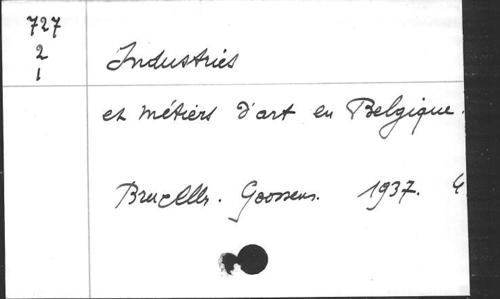 727
2
1
Industries
et métiers d'art en Belgique.
Bruxelles. Goossens. 1937. 4